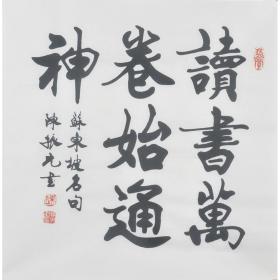 讀書萬
卷始通
神
蘇東坡名句
陳振元書